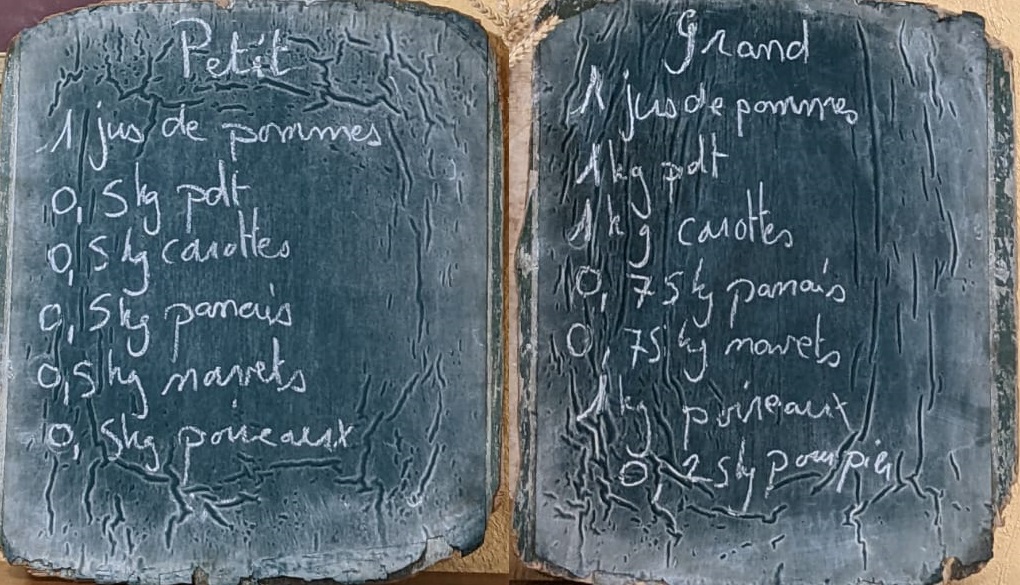 Petit
1 jus de pommes
0,5kg pdt
0,5kg carottes
0,5kg panais
0,5kg navets
0,5kg poireaux
Grand
1 jus de pommes
1kg pdt
1kg carottes
0,75kg panais
0,75kg navets
1kg poireaux
0,25kg pourpier